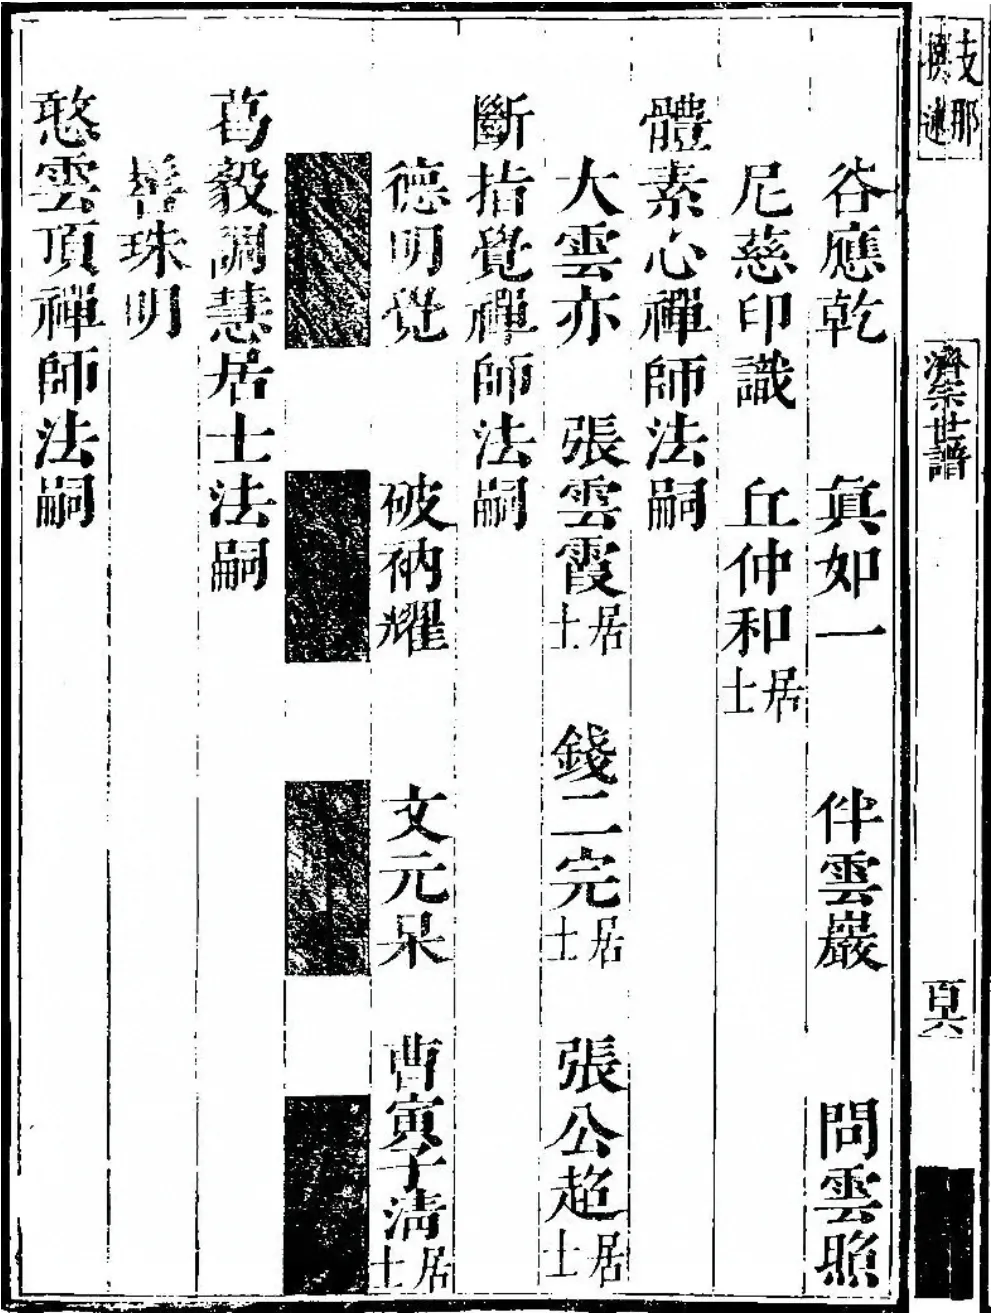 支那
撰述
濟宗世譜
百六
谷應乾 眞如一 伴雲巖 問雲照
尼慈印識 丘仲和居士
體素心禪師法嗣
大雲亦 張雲霞居士 錢二完居士 張公超居士
斷指覺禪師法嗣
德明覺 破衲耀 文元杲 曹寅子淸居士
葛毅調慧居士法嗣
髻珠明
憨雲頂禪師法嗣